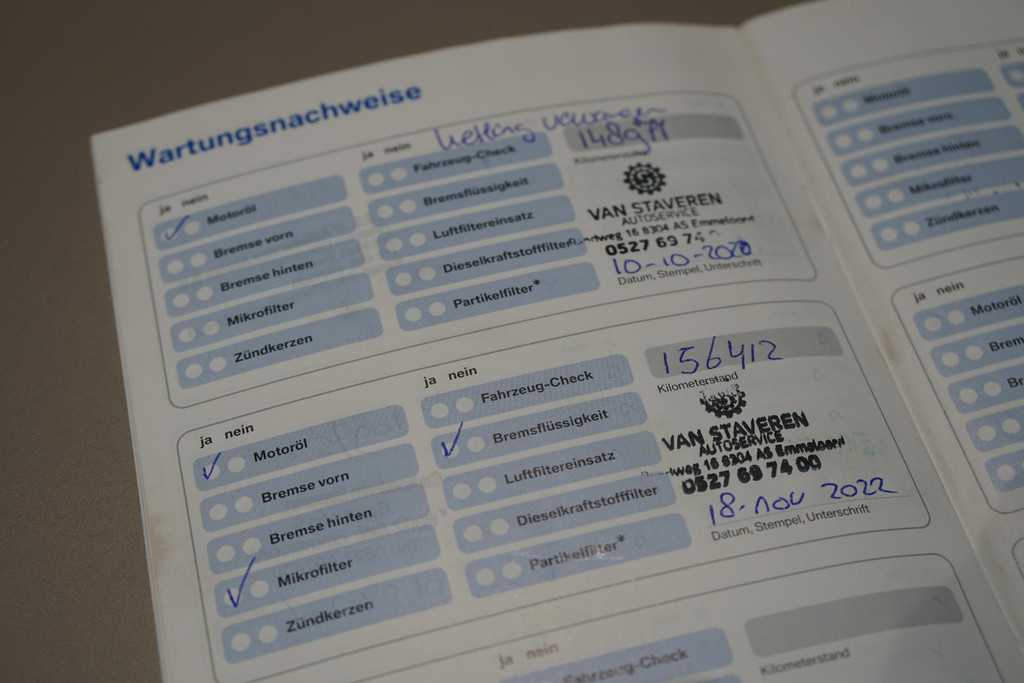 Wartungsnachweise
ja nein
Motoröl
Bremse vorn
Bremse hinten
Mikrofilter
Zündkerzen
ja nein
Fahrzeug-Check
Bremsflüssigkeit
Luftfiltereinsatz
Dieselkraftstofffilter
Partikelfilter*
Kilometerstand
VAN STAVEREN
AUTOSERVICE
weg 16 8304 AS Emmeloord
0527 69 74
10-10-2020
Datum, Stempel, Unterschrift
ja nein
Motoröl
Bremse vorn
Bremse hinten
Mikrofilter
Zündkerzen
ja nein
Fahrzeug-Check
Bremsflüssigkeit
Luftfiltereinsatz
Dieselkraftstofffilter
Partikelfilter*
156412
Kilometerstand
VAN STAVEREN
AUTOSERVICE
weg 16 8304 AS Emmeloord
0527 69 74 00
18-nov 2022
Datum, Stempel, Unterschrift
ja nein
Fahrzeug-Check
Kilometerstand
ja nein
Motoröl
Bremse vorn
Bremse hinten
Mikrofilter
Zündkerzen
ja nein
Motoröl